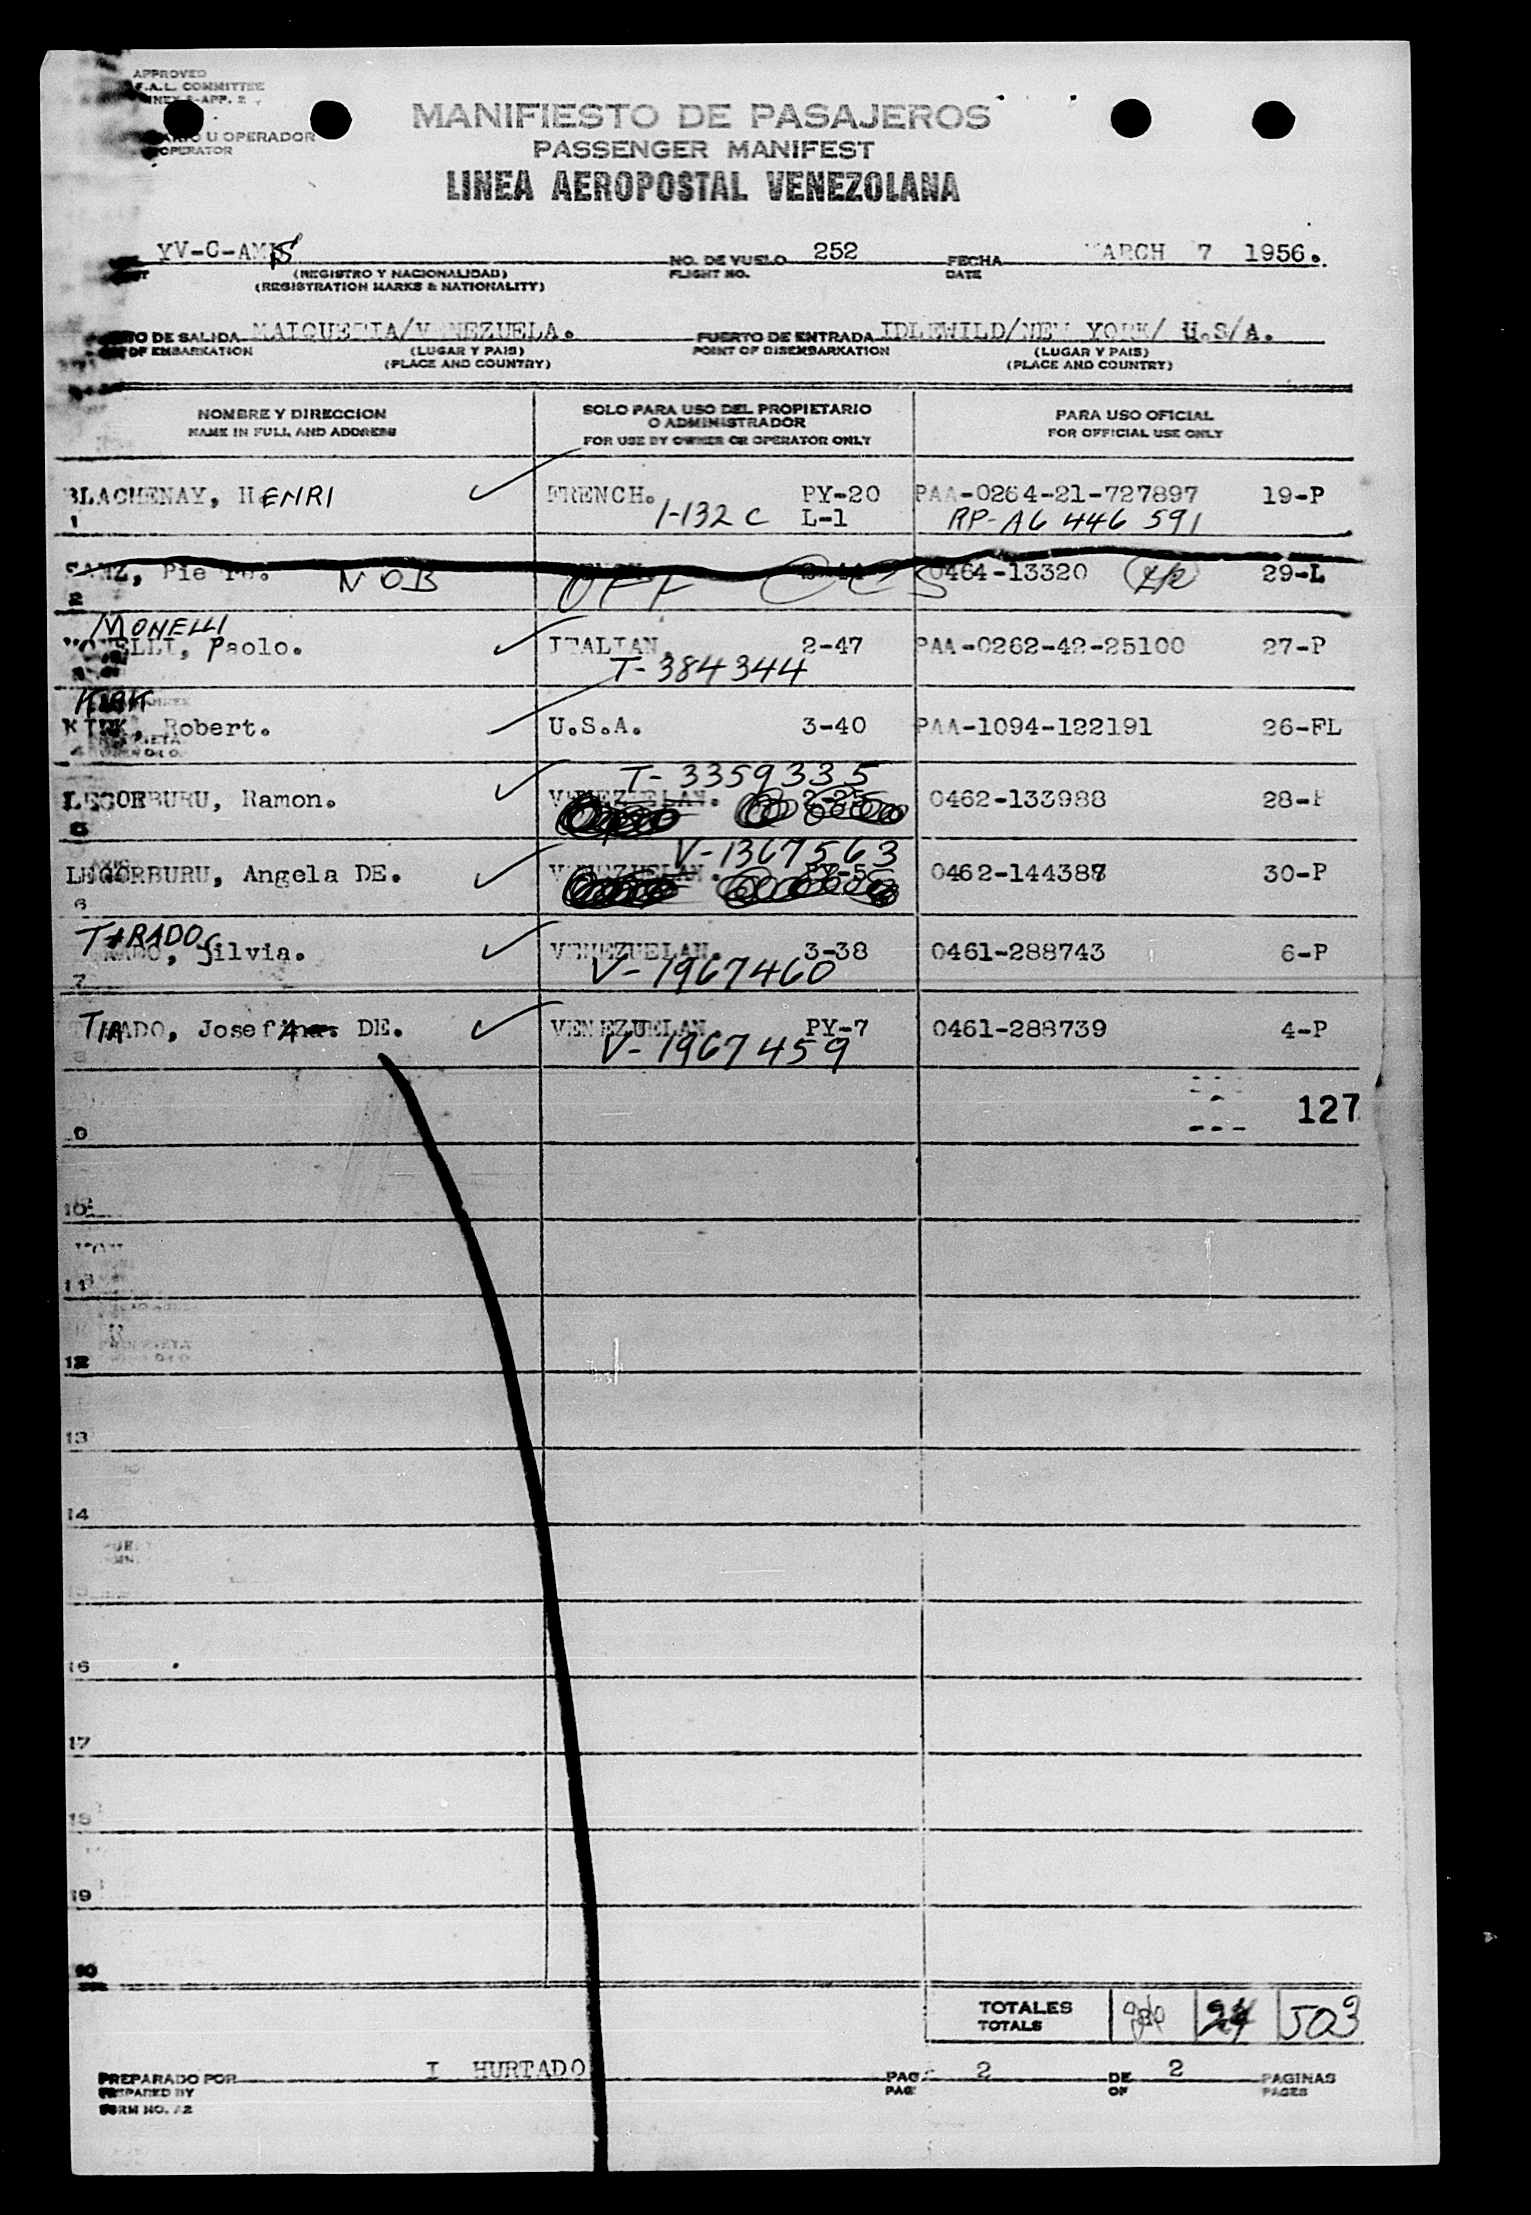 APPROVED
F.A.L. COMMITTEE
U OPERADOR
OPERATOR
MANIFIESTO DE PASAJEROS
PASSENGER MANIFEST
LINEA AEROPOSTAL VENEZOLANA
YV-C-AM
NO. DE VUELO 252 FECHA MARCH 7 1956.
(REGISTRO Y NACIONALIDAD) FLIGHT NO. DATE
(REGISTRATION MARKS & NATIONALITY)
DE SALIDA MAIQUETIA/VENEZUELA. PUERTO DE ENTRADA IDLEWILD/NEW YORK/ U.S/A.
OF EMBARKATION (LUGAR Y PAIS) POINT OF DISEMBARKATION (LUGAR Y PAIS)
(PLACE AND COUNTRY) (PLACE AND COUNTRY)
NOMBRE Y DIRECCION SOLO PARA USO DEL PROPIETARIO PARA USO OFICIAL
O ADMINISTRADOR
NAME IN FULL AND ADDRESS FOR USE BY OWNER OR OPERATOR ONLY FOR OFFICIAL USE ONLY
BLACHENAY, HENRI FRENCH. PY-20 PAA-0264-21-727897 19-P
1 1-132 C L-1 RP-A6 446 591
NOB OFF 0464-13320 29-L
2
MONELLI
MONELLI, Paolo. ITALIAN. 2-47 PAA-0262-42-25100 27-P
3 T-384344
KIRK
KIRK, Robert. U.S.A. 3-40 PAA-1094-122191 26-FL
4
T-3359335
LEGORBURU, Ramon. VENEZUELAN. 0462-133988 28-
5
V-1367563
LEGORBURU, Angela DE. VENEZUELAN. 0462-144388 30-P
6
TIRADO
, Silvia. VENEZUELAN. 3-38 0461-288743 6-P
7 V-1967460
TIRADO, Josefa DE. VENEZUELAN PY-7 0461-288739 4-P
8 V-1967459
127
9
10
11
12
13
14
15
16
17
18
19
20
TOTALES 503
TOTALS
PREPARADO POR I HURTADO PAG. 2 DE 2 PAGINAS
PREPARED BY PAG OF PAGES
FORM NO. A2